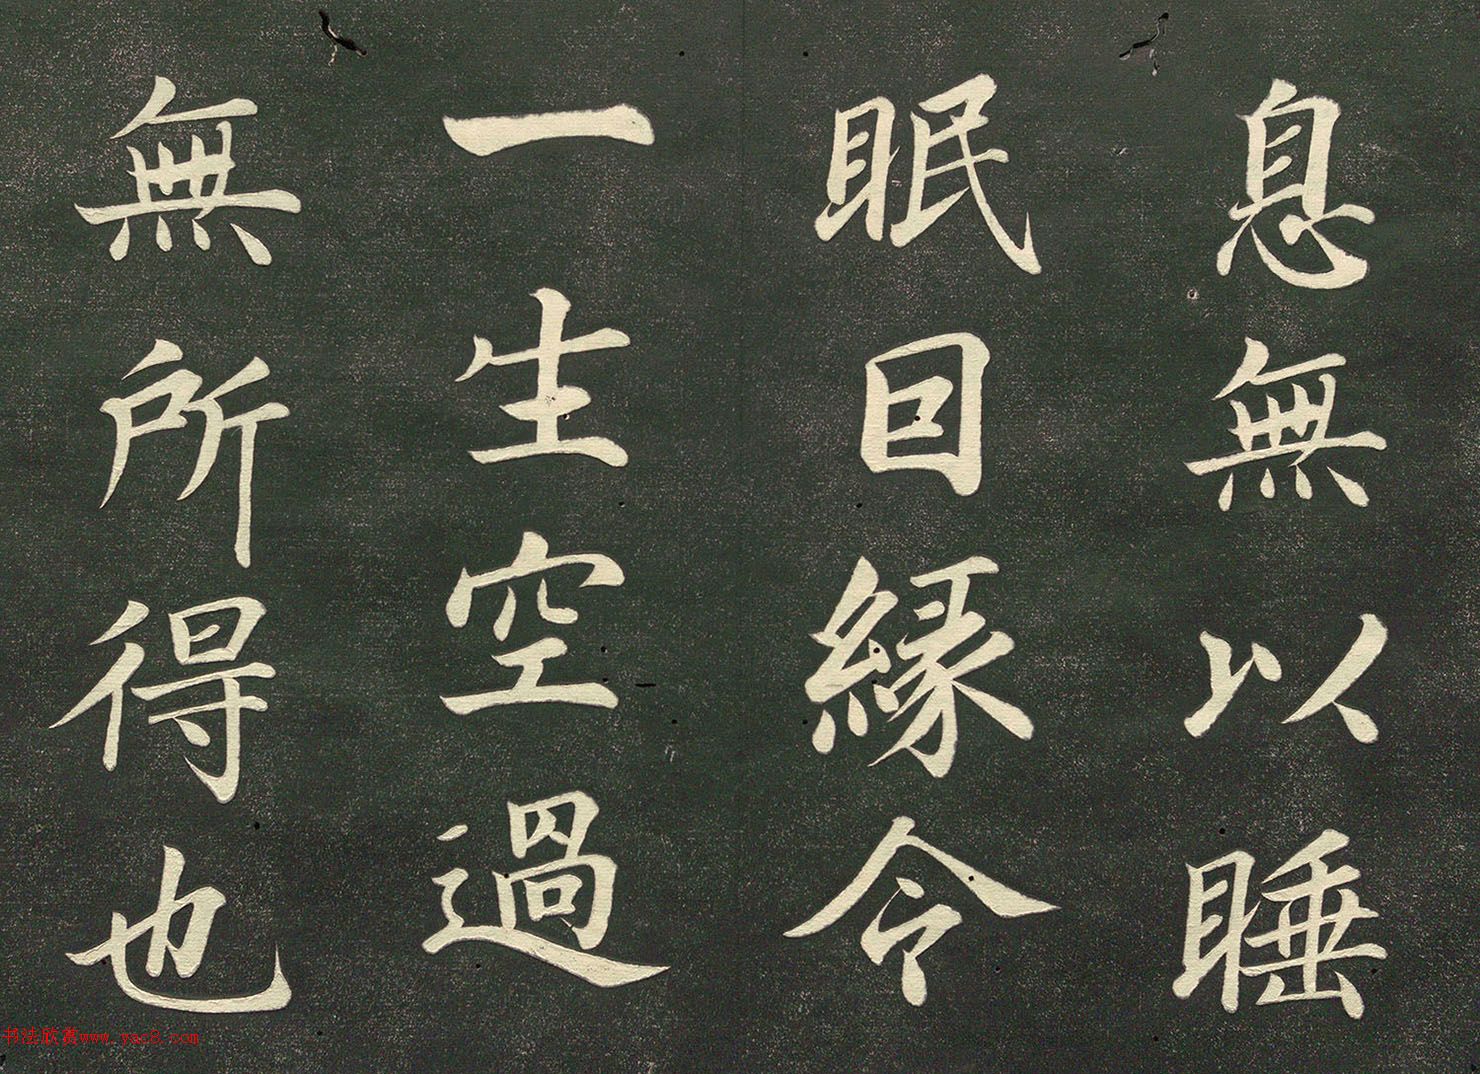 息無以睡
眠囙縁令
一生空過
無所得也
书法欣赏www.yac8.com